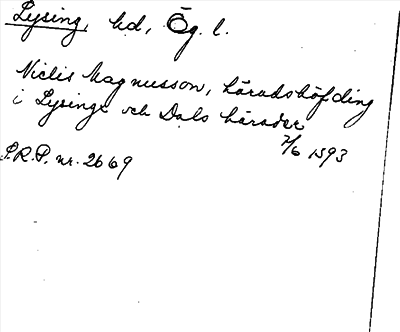 Lysing, hd, Ög. l.
Niclis Magnusson, häradshöfding
i Lysings och Dals härader
2/6 1393
S.R.P. nr. 2669